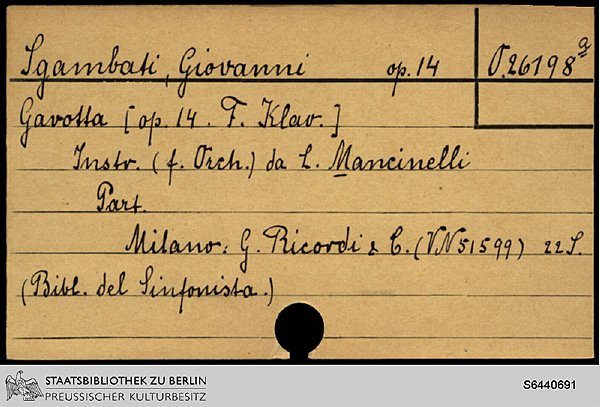 Sgambati, Giovanni op. 14 O.26198a
Gavotta [op. 14. F. Klav.]
Instr. (f. Orch.) da L. Mancinelli
Part.
Milano: G. Ricordi & C. (VN 51599) 22 S.
(Bibl. del Sinfonista.)
STAATSBIBLIOTHEK ZU BERLIN
PREUSSISCHER KULTURBESITZ
S6440691